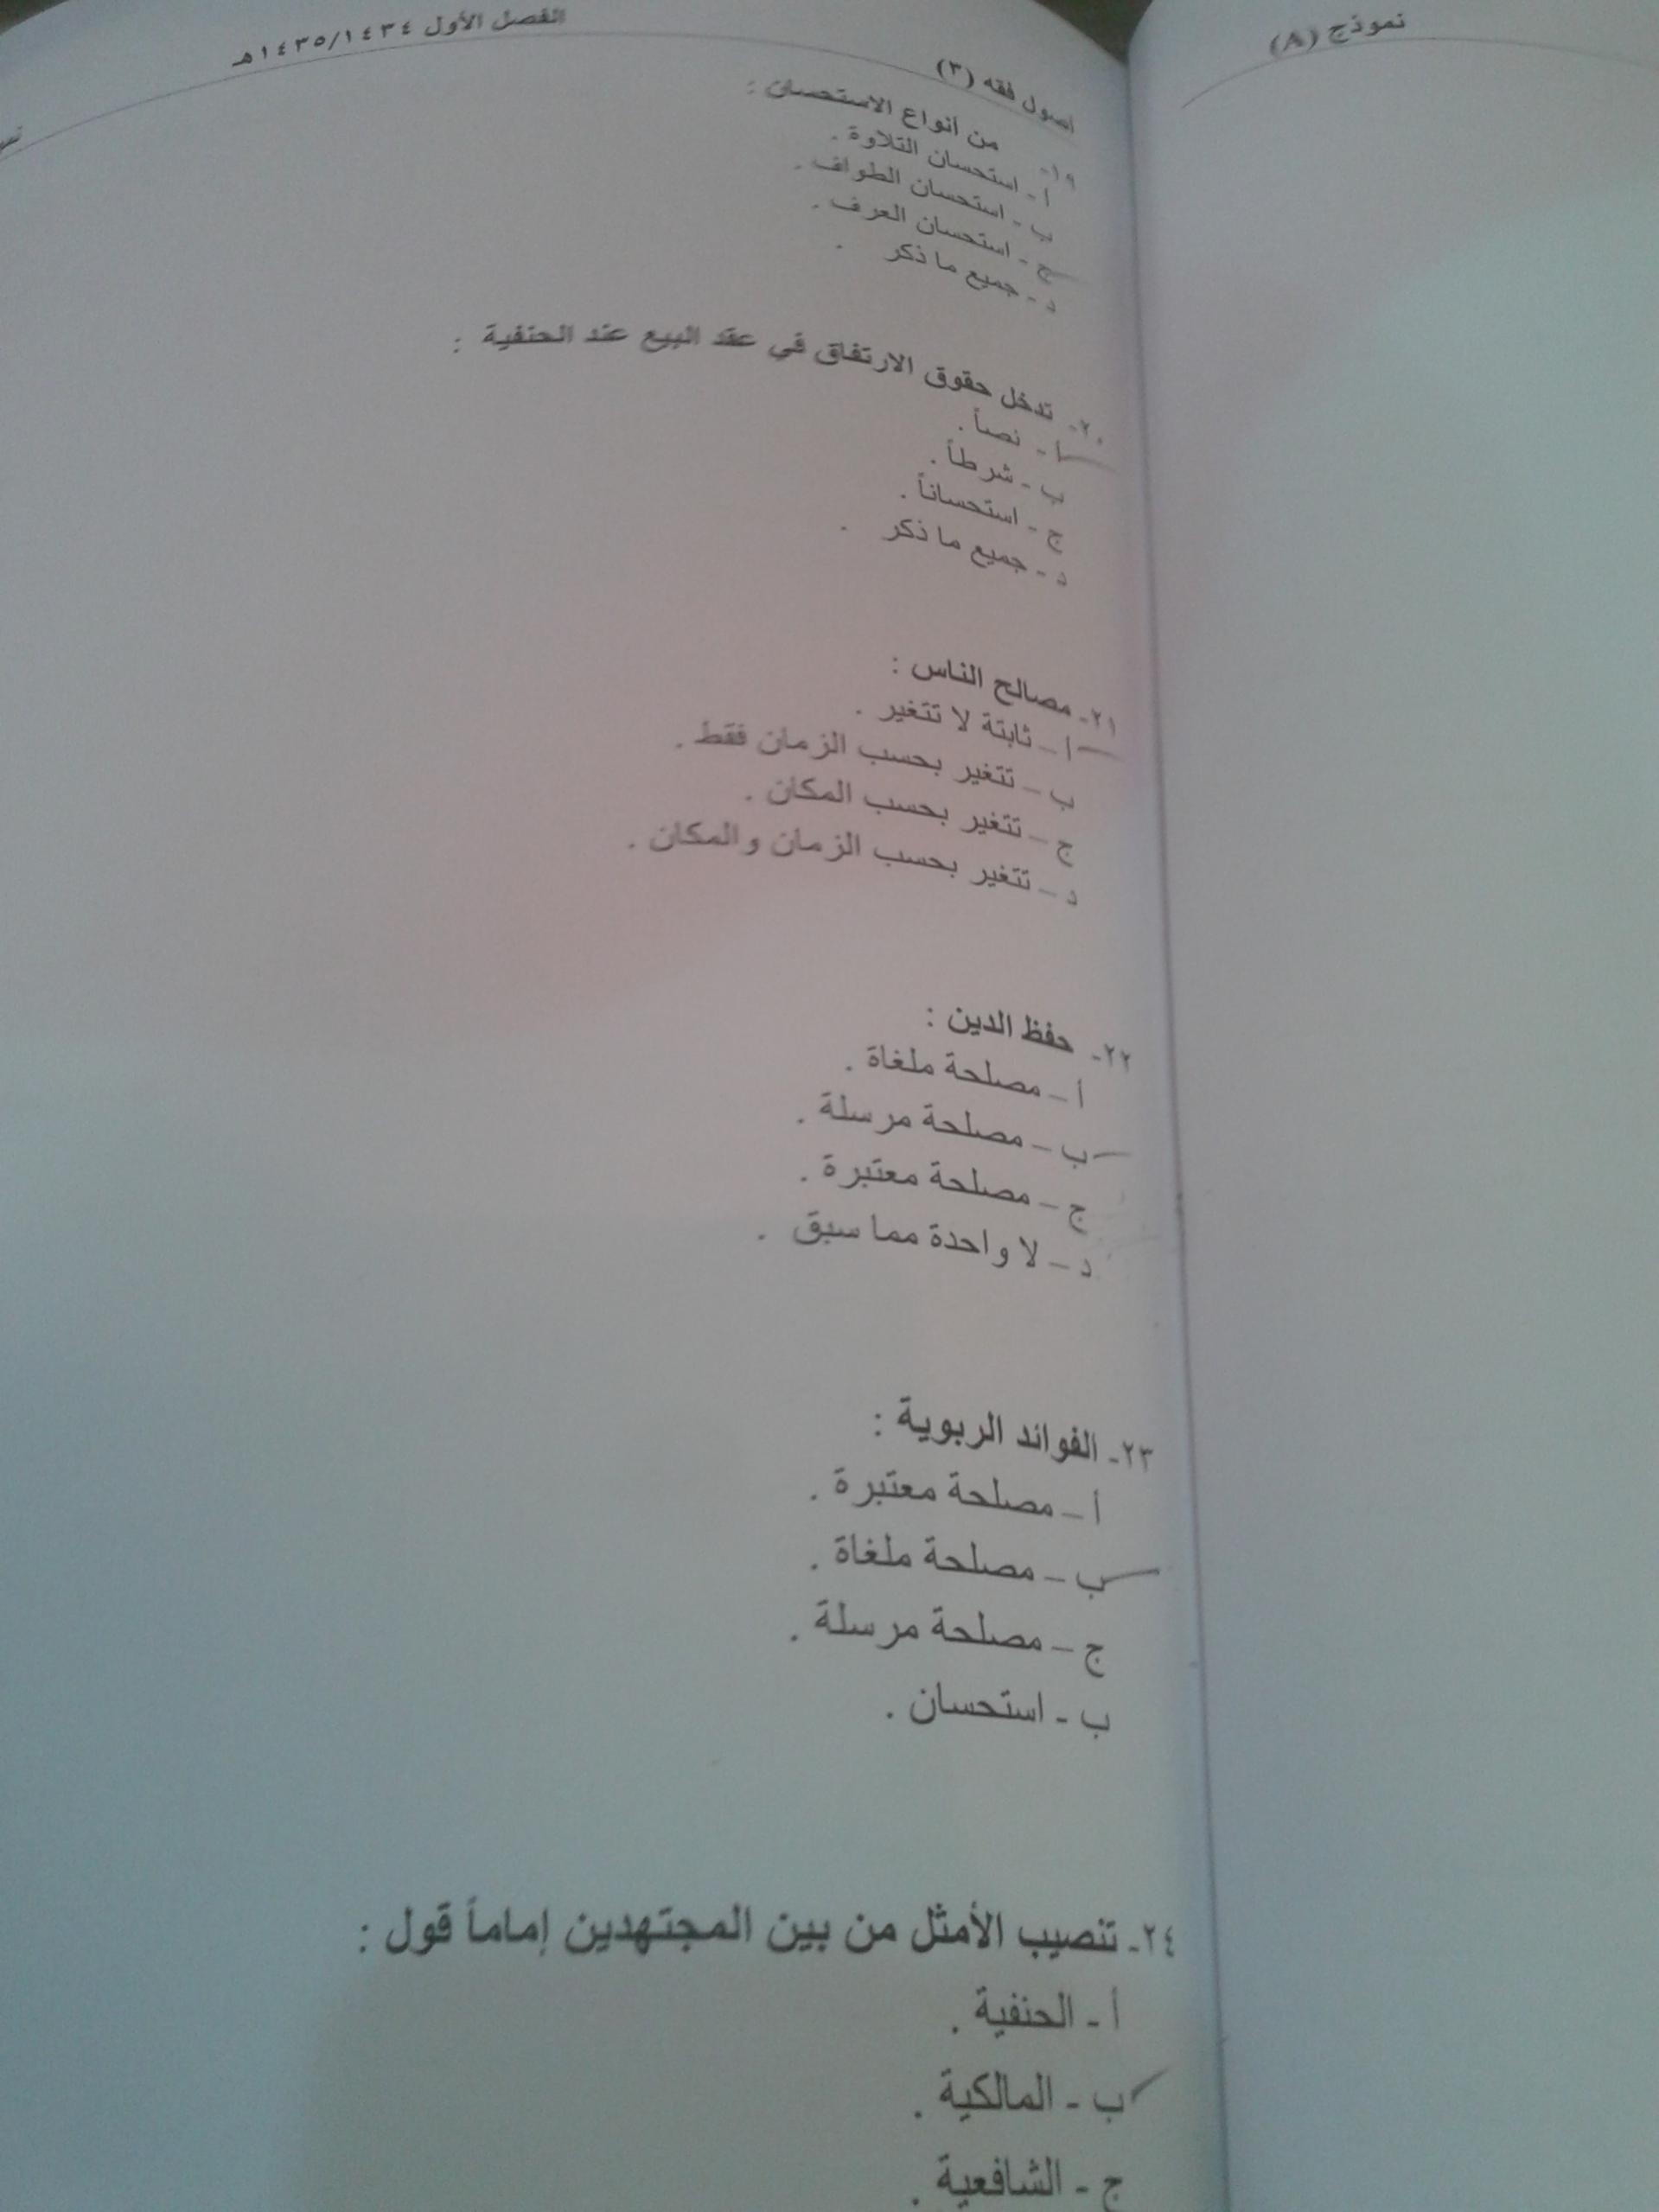 نموذج (A)
أصول فقه (٣)
الفصل الأول ١٤٣٤/١٤٣٥هـ
١٩- من أنواع الاستحسان :
أ - استحسان التلاوة .
ب - استحسان الطواف .
ج - استحسان العرف .
د - جميع ما ذكر .
٢٠- تدخل حقوق الارتفاق في عقد البيع عند الحنفية :
أ - نصاً .
ب - شرطاً .
ج - استحساناً .
د - جميع ما ذكر .
٢١- مصالح الناس :
أ – ثابتة لا تتغير .
ب – تتغير بحسب الزمان فقط .
ج – تتغير بحسب المكان .
د – تتغير بحسب الزمان والمكان .
٢٢- حفظ الدين :
أ – مصلحة ملغاة .
ب – مصلحة مرسلة .
ج – مصلحة معتبرة .
د – لا واحدة مما سبق .
٢٣- الفوائد الربوية :
أ – مصلحة معتبرة .
ب – مصلحة ملغاة .
ج – مصلحة مرسلة .
ب - استحسان .
٢٤- تنصيب الأمثل من بين المجتهدين إماماً قول :
أ - الحنفية .
ب - المالكية .
ج - الشافعية .